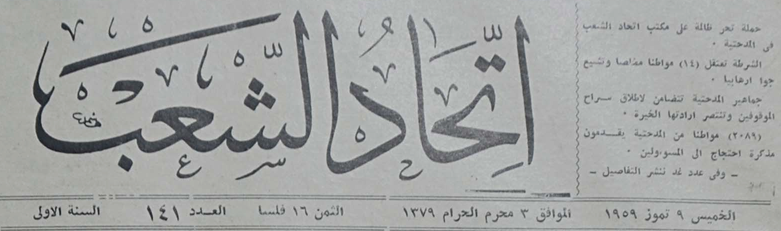 اتحاد الشعب
حملة تحر ظالمة على مكتب اتحاد الشعب
فى المدحتية •
الشرطة تعتقل (١٤) مواطنا مخلصا وتشيع
جوا ارهابيا •
جماهير المدحتية تتضامن لاطلاق سراح
الموقوفين وتنتصر ارادتها الخيرة •
(٢٠٨٩) مواطنا من المدحتية يقدمون
مذكرة احتجاج الى المسؤولين •
ـ وفى عدد غد ننشر التفاصيل ـ
الخميس ٩ تموز ١٩٥٩ الموافق ٣ محرم الحرام ١٣٧٩ الثمن ١٦ فلسا العدد ١٤١ السنة الاولى